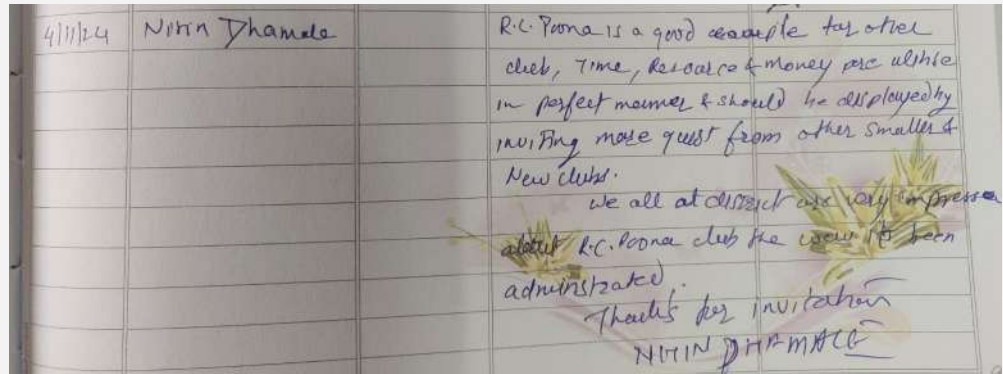 4/11/24 Nitin Dhamale R.C. Poona is a good example for other
club, Time, Resource & money are utilise
in perfect manner & should be displayed by
inviting more guest from other smaller &
New clubs.
We all at district are very impressed
about R.C. Poona club the way its been
administrated.
Thanks for invitation
NITIN DHAMALE